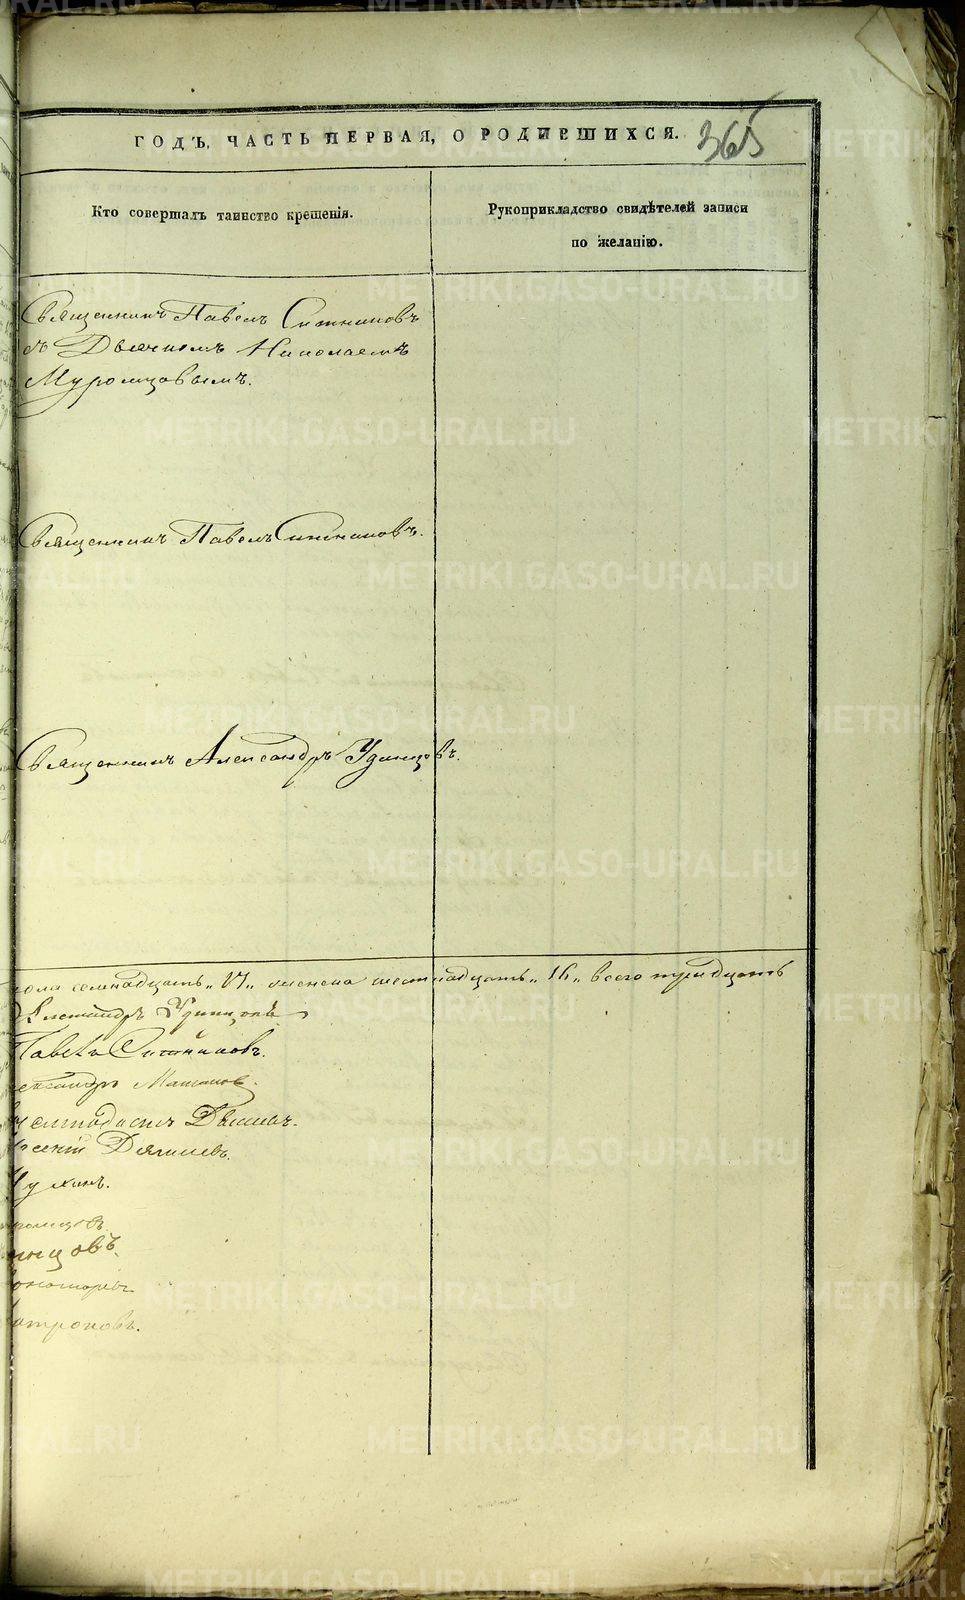 ГОДЪ, ЧАСТЬ ПЕРВАЯ, О РОДИВШИХСЯ.
365
Кто совершалъ таинство крещенія.
Рукоприкладство свидѣтелей записи
по желанію.
Священникъ Павелъ Ситниковъ
съ Дьячкомъ Николаемъ
Муромцовымъ.
Священникъ Павелъ Ситниковъ.
Священникъ Александръ Удинцовъ.
пола семнадцать „17„ женска шестнадцать „16„ всего тридцать
Александръ Удинцовъ
Павелъ Ситниковъ.
ександръ
Дьякон
рсеній Дягилевъ.
ухинъ.
ромцовъ
инцовъ.
ономарь
атроновъ.
METRIKI.GASO-URAL.RU